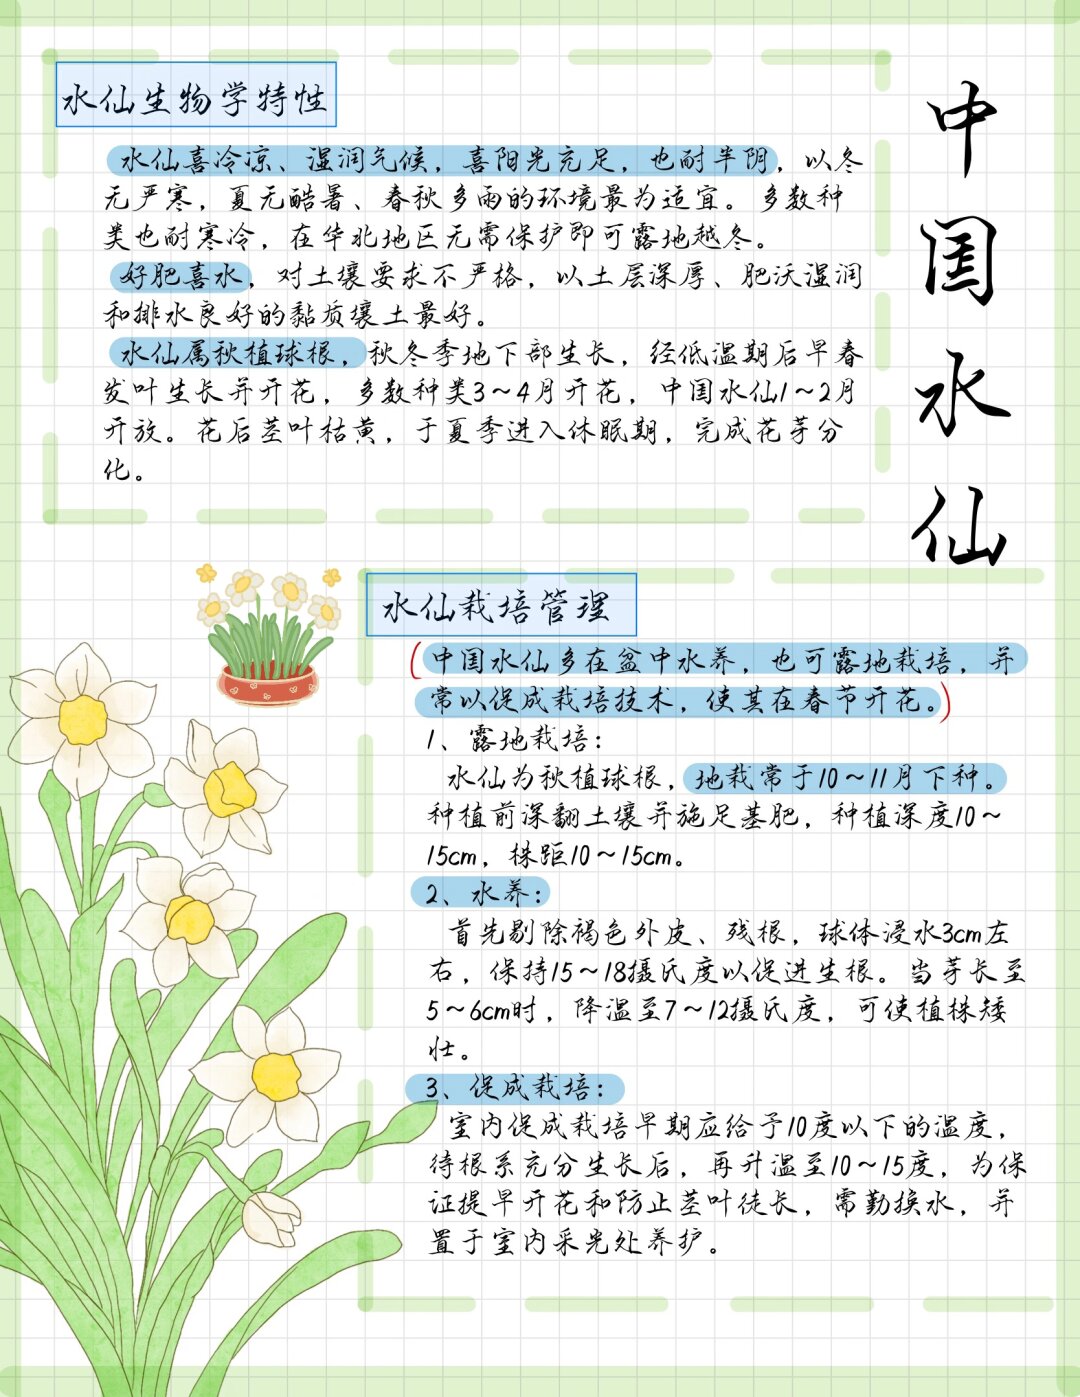 中国水仙
水仙生物学特性
水仙喜冷凉、湿润气候，喜阳光充足，也耐半阴，以冬
无严寒，夏无酷暑、春秋多雨的环境最为适宜。多数种
类也耐寒冷，在华北地区无需保护即可露地越冬。
好肥喜水，对土壤要求不严格，以土层深厚、肥沃湿润
和排水良好的黏质壤土最好。
水仙属秋植球根，秋冬季地下部生长，经低温期后早春
发叶生长并开花，多数种类3～4月开花，中国水仙1～2月
开放。花后茎叶枯黄，于夏季进入休眠期，完成花芽分
化。
水仙栽培管理
(中国水仙多在盆中水养，也可露地栽培，并
常以促成栽培技术，使其在春节开花。)
1、露地栽培：
水仙为秋植球根，地栽常于10～11月下种。
种植前深翻土壤并施足基肥，种植深度10～
15cm，株距10～15cm。
2、水养：
首先剔除褐色外皮、残根，球体浸水3cm左
右，保持15～18摄氏度以促进生根。当芽长至
5～6cm时，降温至7～12摄氏度，可使植株矮
壮。
3、促成栽培：
室内促成栽培早期应给予10度以下的温度，
待根系充分生长后，再升温至10～15度，为保
证提早开花和防止茎叶徒长，需勤换水，并
置于室内采光处养护。